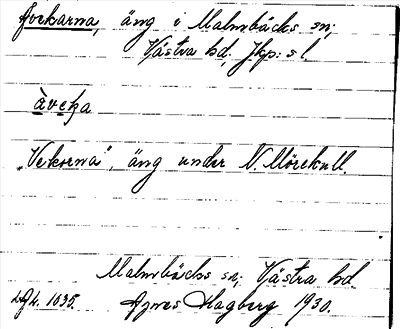 äng i Malmbäcks sn;
Västra hd, Jkp: s l.
àveka
"Vekorna", äng under N. Mörekull.
Malmbäcks sn; Västra hd
1035. Agnes Hagberg 1930.